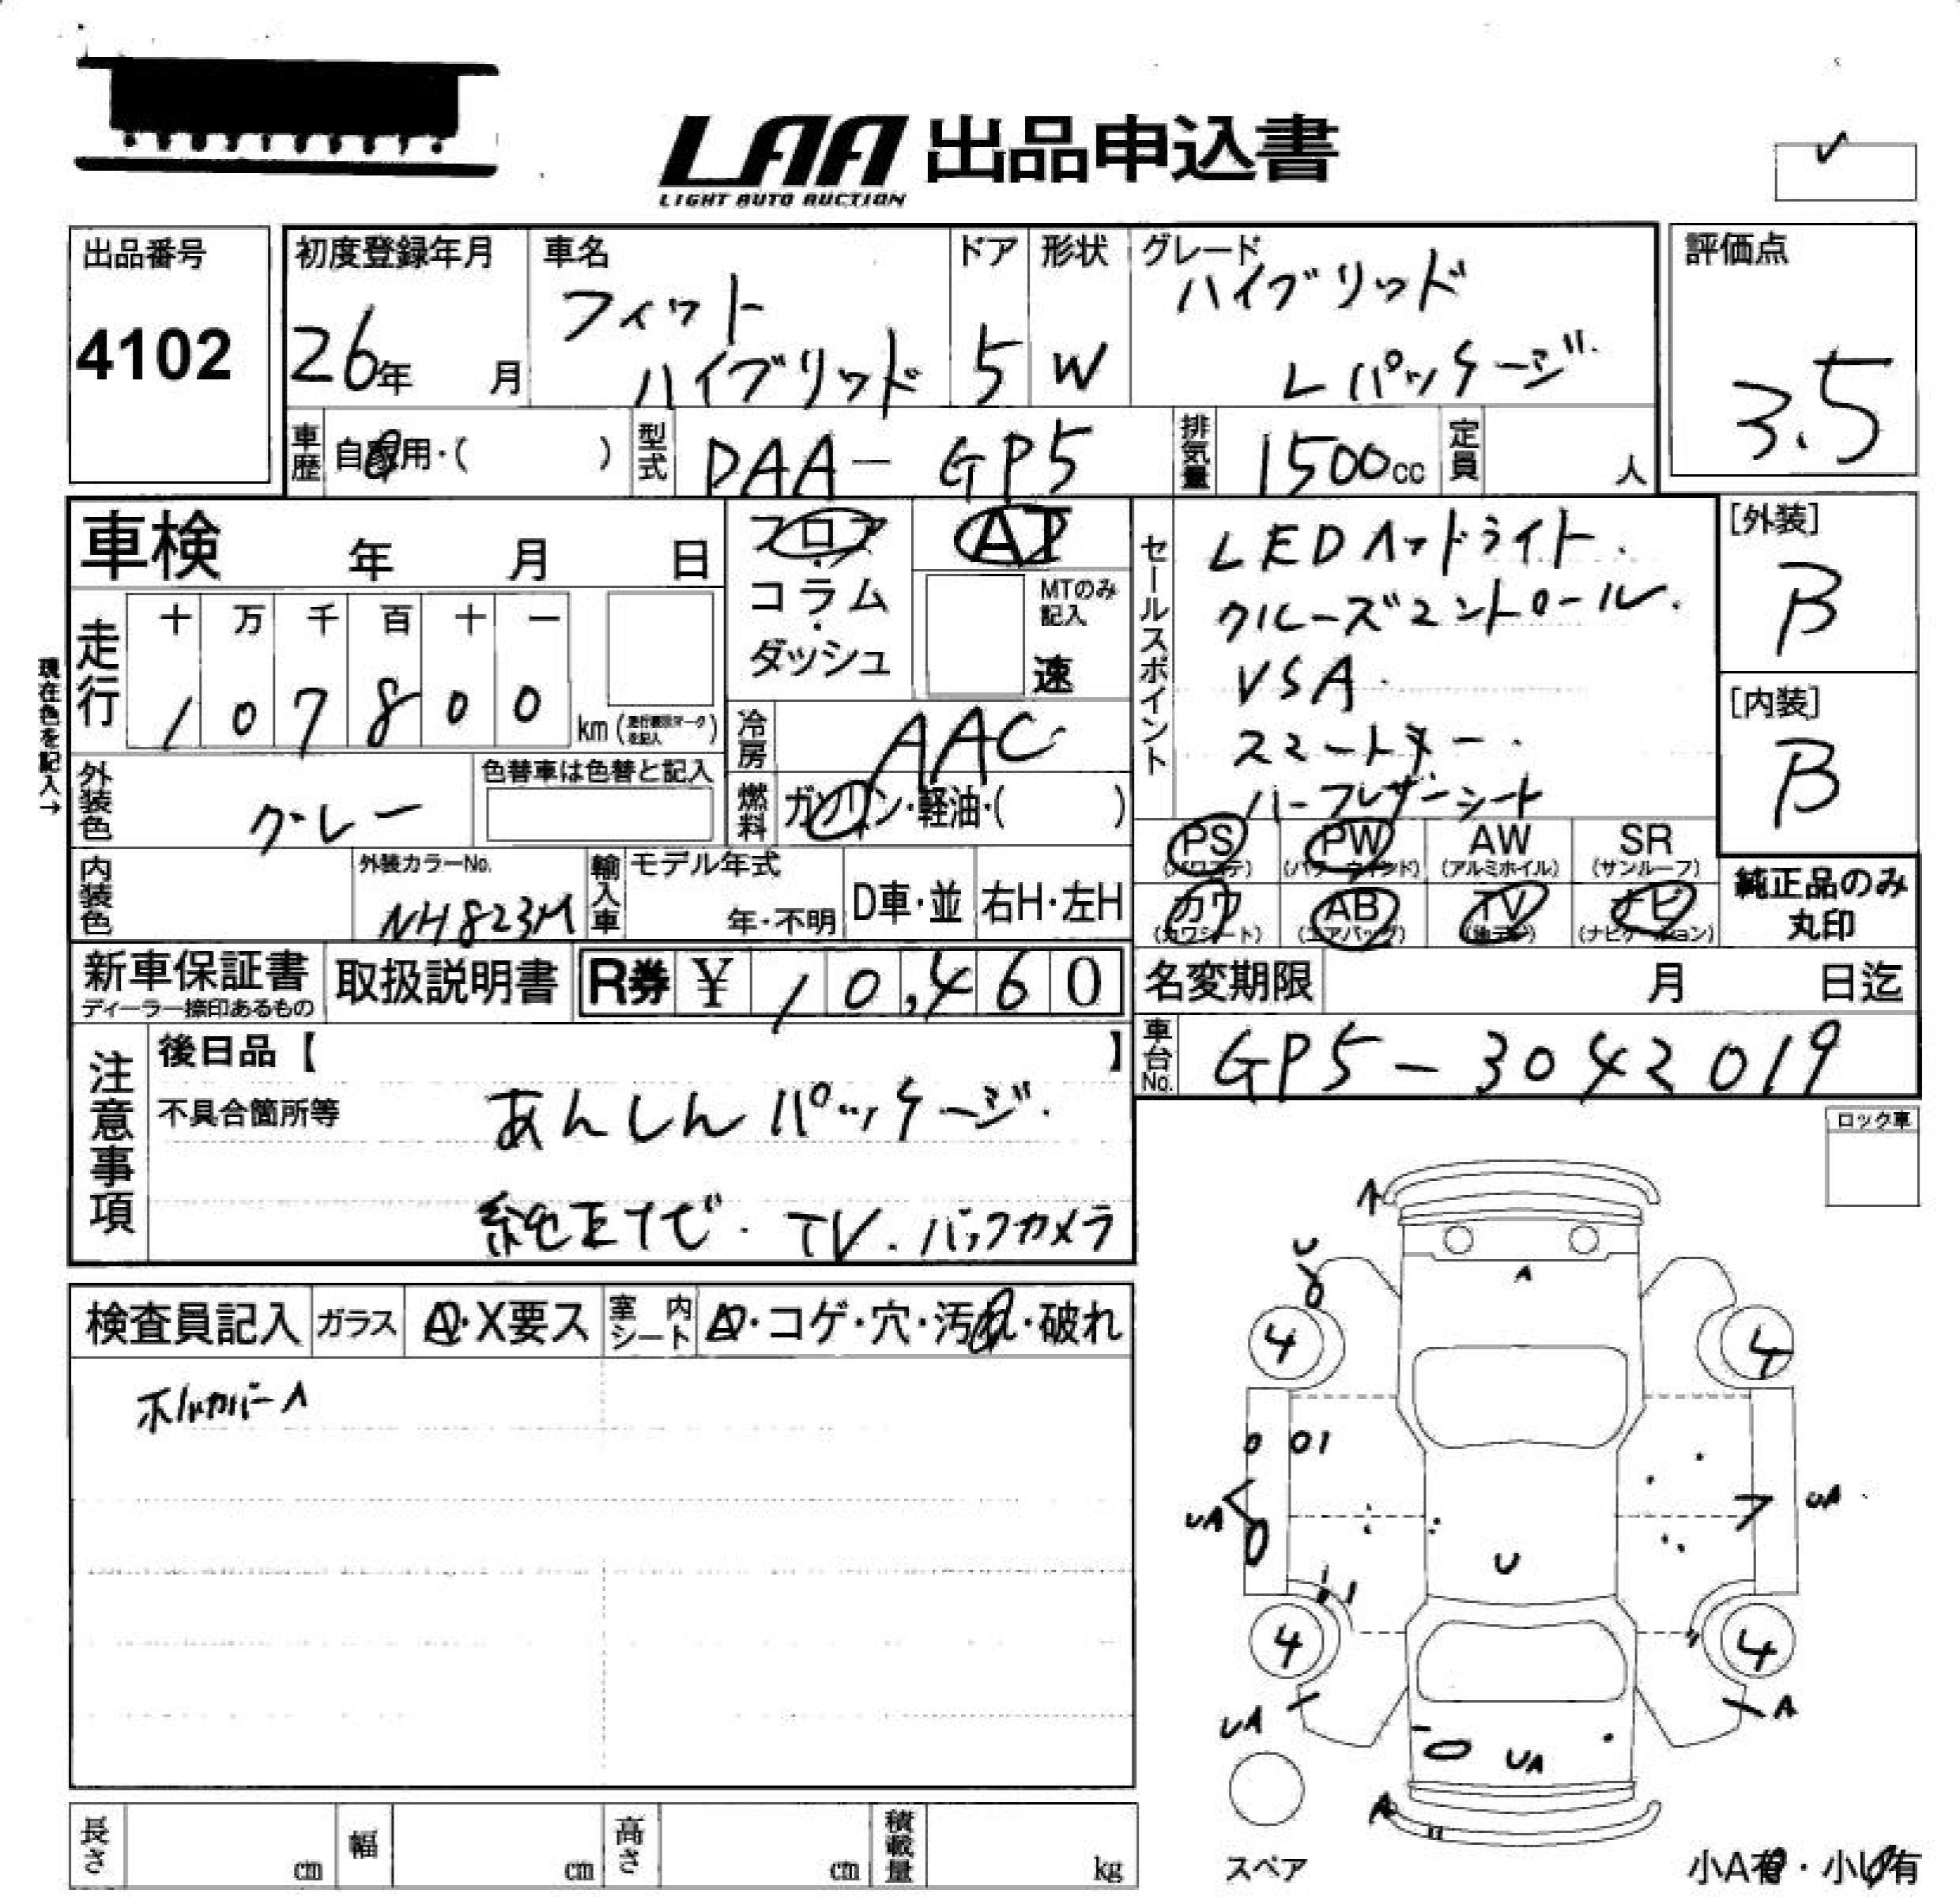 LAA 出品申込書
LIGHT AUTO AUCTION
✓
出品番号
4102
初度登録年月
26年 月
車名
フィット
ハイブリッド
ドア
5
形状
W
グレード
ハイブリッド
Lパッケージ
評価点
3.5
車歴
自家用・( )
型式
DAA-GP5
排気量
1500cc
定員
人
車検 年 月 日
走行
十 万 千 百 十 一
1 0 7 8 0 0
km
現在色を記入→
フロア
・
コラム
・
ダッシュ
AT
MTのみ
記入
速
冷房
AAC
燃料
ガソリン・軽油・( )
外装色
グレー
色替車は色替と記入
内装色
外装カラーNo.
NH823M
輸入車
モデル年式
年・不明
D車・並
右H・左H
セールスポイント
LEDヘッドライト.
クルーズコントロール.
VSA.
スマートキー.
ハーフレザーシート
[外装]
B
[内装]
B
PS
(パワステ)
PW
(パワーウインド)
AW
(アルミホイル)
SR
(サンルーフ)
カワ
(カワシート)
AB
(エアバッグ)
TV
(地デジ)
ナビ
(ナビゲーション)
純正品のみ
丸印
新車保証書
ディーラー捺印あるもの
取扱説明書
R券 ¥ 10,460
名変期限 月 日迄
車台No.
GP5-3042019
注意事項
後日品【 】
不具合箇所等
あんしんパッケージ.
純正ナビ. TV. バックカメラ
ロック車
検査員記入
ガラス
A・X要ス
室内
シート
A・コゲ・穴・汚れ・破れ
ホイルカバーA
A
U
A
4
4
UA
UA
U
4
4
UA
A
UA
A
スペア
小A有・小U有
長さ cm
幅 cm
高さ cm
積載量 kg